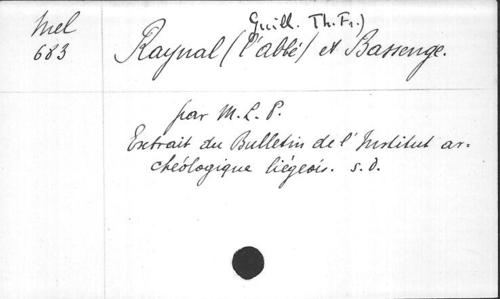 Mel
683
Guill. Th. Fr.)
Raynal (l'abbé) et Bassenge.
par M. L. P.
Extrait du Bulletin de l'Institut ar-
chéologique liégeois. s. D.